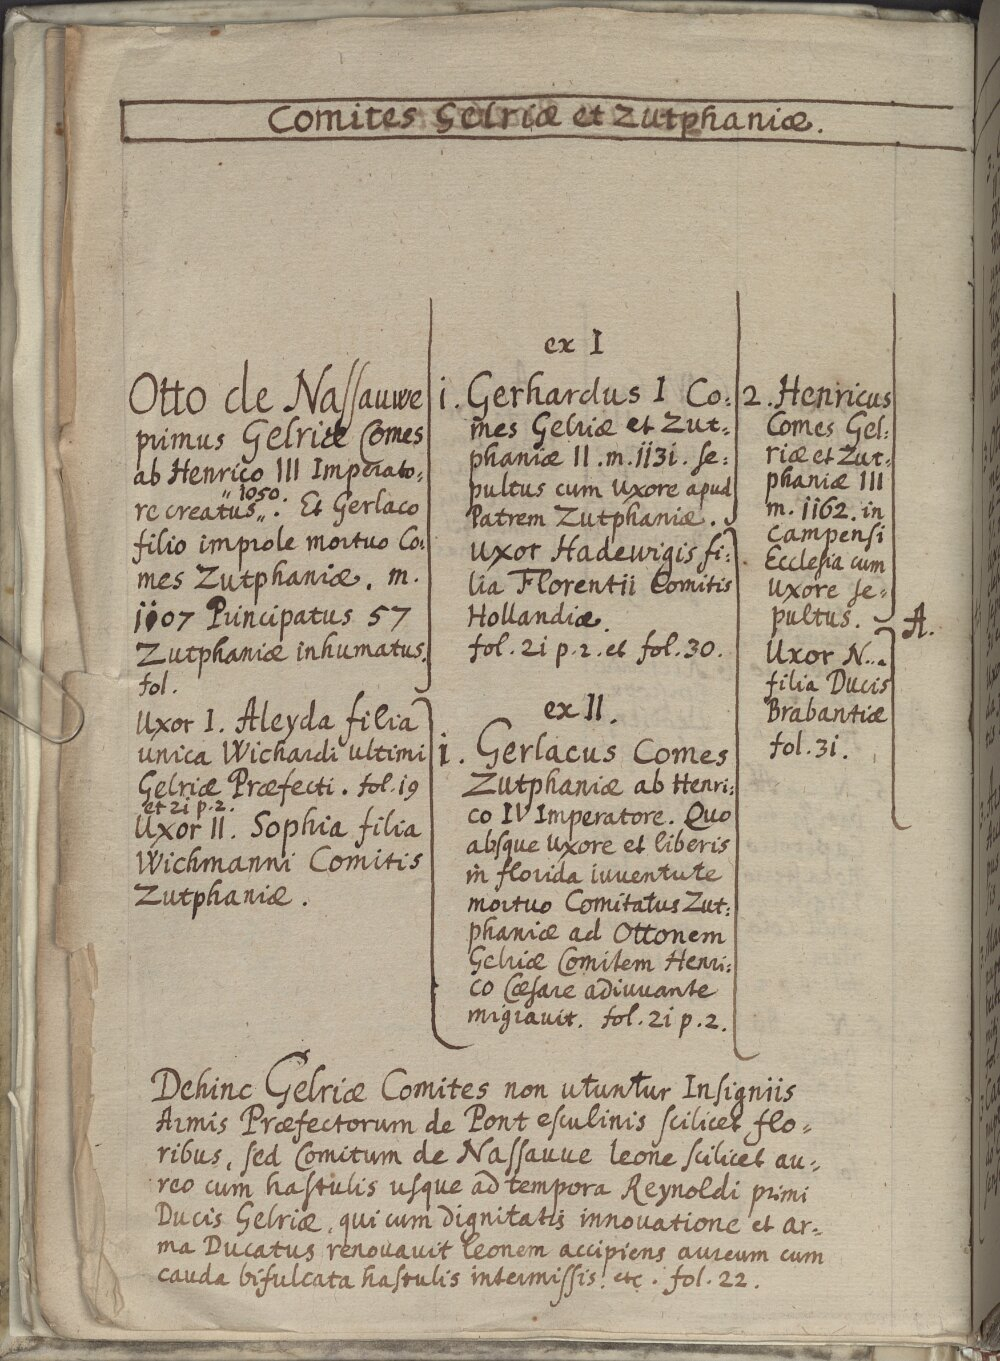 Comites Gelriæ et Zutphaniæ.
Otto de Nassauwe
primus Gelriæ Comes
ab Henrico III Imperato:
re creatus „ 1050. „. Et Gerlaco
filio improle mortuo Co:
mes Zutphaniæ. m.
1107 Principatus 57
Zutphaniæ inhumatus.
fol.
Uxor I. Aleyda filia
unica Wichardi ultimi
Gelriæ Præfecti. fol. 19
et 21 p. 2.
Uxor II. Sophia filia
Wichmanni Comitis
Zutphaniæ.
ex I
i. Gerhardus I Co:
mes Gelriæ et Zut:
phaniæ II. m. ii3i. se:
pultus cum Uxore apud
Patrem Zutphaniæ.
Uxor Hadewigis fi:
lia Florentii Comitis
Hollandiæ.
fol. 2i p. 2. et fol. 30.
ex II.
i. Gerlacus Comes
Zutphaniæ ab Henri:
co IV Imperatore. Quo
absque Uxore et liberis
in florida iuventute
mortuo Comitatus Zut:
phaniæ ad Ottonem
Gelriæ Comitem Henri:
co Cæsare adiuvante
migravit. fol. 2i p. 2.
2. Henricus
Comes Gel:
riæ et Zut:
phaniæ III
m. ii62. in
Campensi
Ecclesia cum
Uxore se:
pultus.
A.
Uxor N...
filia Ducis
Brabantiæ
fol. 3i.
Dehinc Gelriæ Comites non utuntur Insigniis
Armis Præfectorum de Pont esculinis scilicet flo:
ribus, sed Comitum de Nassauue leone scilicet au:
reo cum hastulis usque ad tempora Reynoldi primi
Ducis Gelriæ, qui cum dignitatis innovatione et ar:
ma Ducatus renovavit leonem accipiens aureum cum
cauda bifulcata hastulis intermissis. etc. fol. 22.